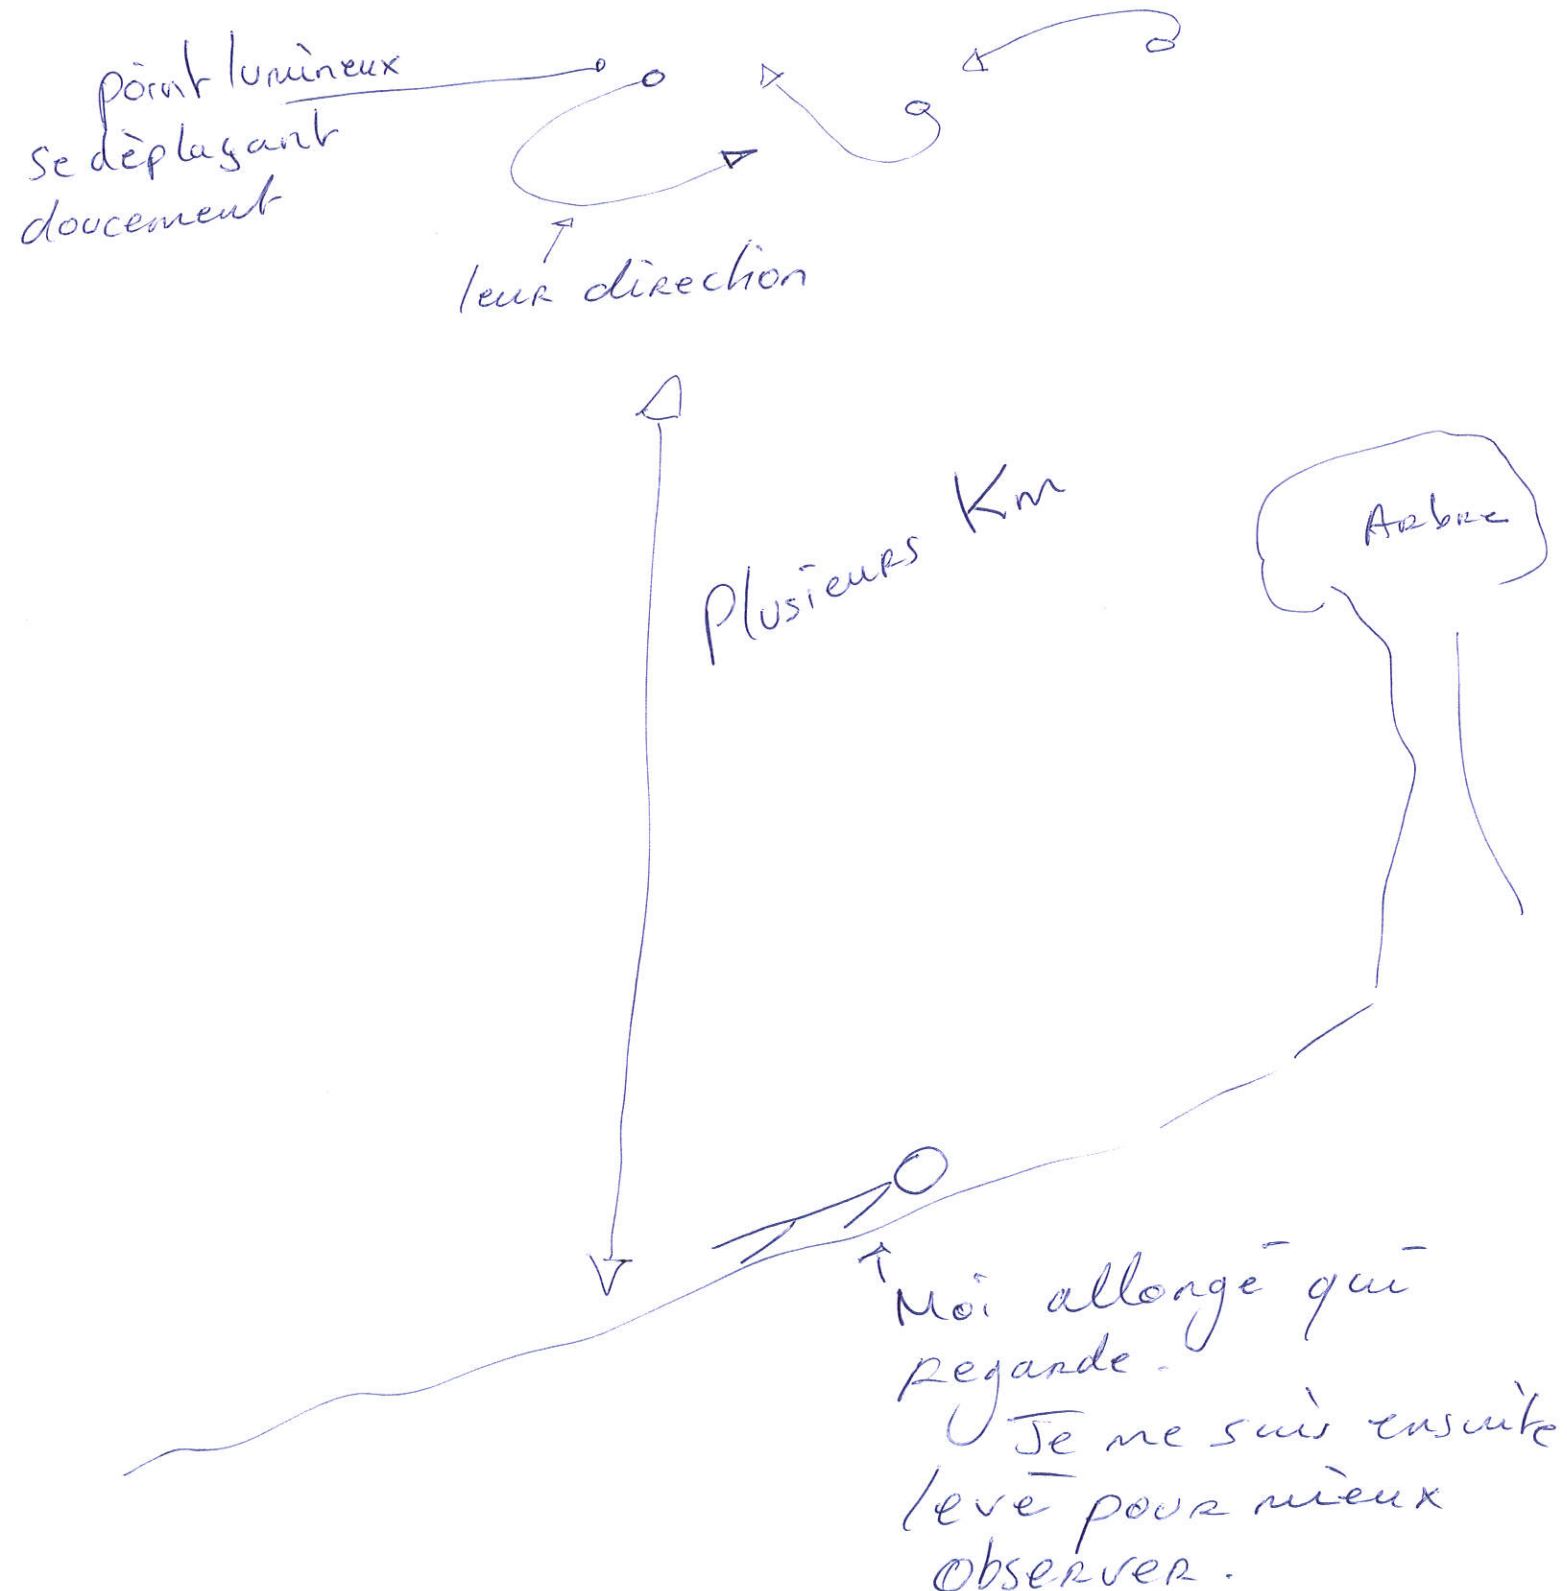 point lumineux
se déplaçant
doucement
leur direction
Plusieurs Km
Arbre
Moi allongé qui
regarde.
Je me suis ensuite
levé pour mieux
observer.